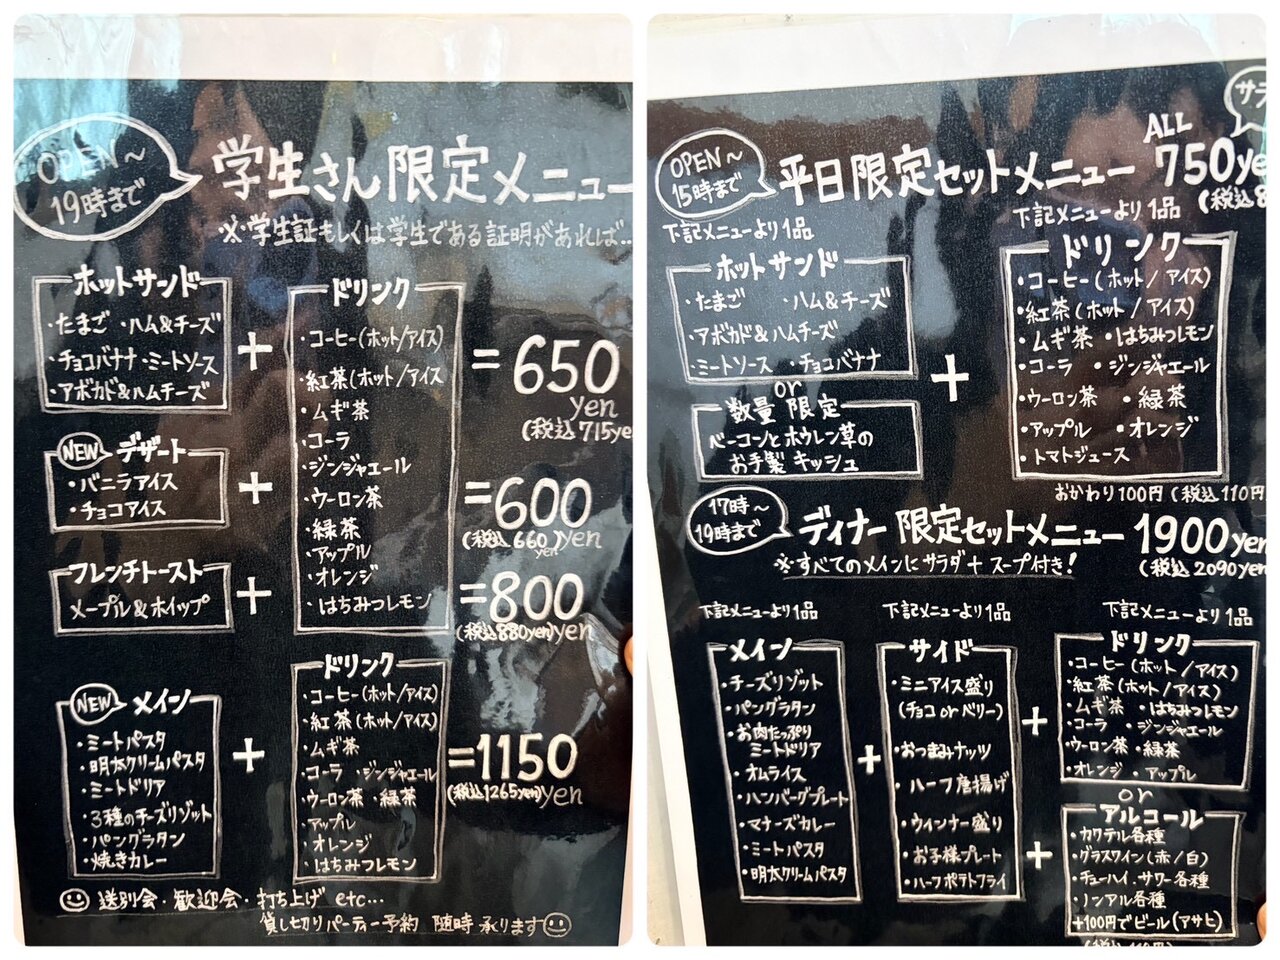 OPEN～
19時まで
学生さん限定メニュー
※学生証もしくは学生である証明があれば..
ホットサンド
・たまご ・ハム&チーズ
・チョコバナナ ・ミートソース
・アボカド&ハムチーズ
+
ドリンク
・コーヒー(ホット/アイス)
・紅茶(ホット/アイス
・ムギ茶
・コーラ
・ジンジャエール
・ウーロン茶
・緑茶
・アップル
・オレンジ
・はちみつレモン
=650
yen
(税込715ye
NEW デザート
・バニラアイス
・チョコアイス
+
=600
(税込660yen)yen
フレンチトースト
メープル&ホイップ
+
=800
(税込880yen)yen
NEW メイン
・ミートパスタ
・明太クリームパスタ
・ミートドリア
・3種のチーズリゾット
・パングラタン
・焼きカレー
+
ドリンク
・コーヒー(ホット/アイス)
・紅茶(ホット/アイス)
・ムギ茶
・コーラ ・ジンジャエール
・ウーロン茶 ・緑茶
・アップル
・オレンジ
・はちみつレモン
=1150
(税込1265yen)yen
送別会・歓迎会・打ち上げ etc...
貸し切りパーティー予約 随時承ります
サラ
OPEN～
15時まで
平日限定セットメニュー
ALL
750ye
(税込8
下記メニューより1品
ホットサンド
・たまご ・ハム&チーズ
・アボカド&ハムチーズ
・ミートソース ・チョコバナナ
or
数量限定
ベーコンとホウレン草の
お手製キッシュ
+
下記メニューより1品
ドリンク
・コーヒー(ホット/アイス)
・紅茶(ホット/アイス)
・ムギ茶 ・はちみつレモン
・コーラ ・ジンジャエール
・ウーロン茶 ・緑茶
・アップル ・オレンジ
・トマトジュース
おかわり100円(税込110円
17時～
19時まで
ディナー限定セットメニュー
1900yen
(税込2090yen
※すべてのメインにサラダ+スープ付き!
下記メニューより1品
メイン
・チーズリゾット
・パングラタン
・お肉たっぷり
ミートドリア
・オムライス
・ハンバーグプレート
・マナーズカレー
・ミートパスタ
・明太クリームパスタ
+
下記メニューより1品
サイド
・ミニアイス盛り
(チョコorベリー)
・おつまみナッツ
・ハーフ唐揚げ
・ウインナー盛り
・お子様プレート
・ハーフポテトフライ
+
下記メニューより1品
ドリンク
・コーヒー(ホット/アイス)
・紅茶(ホット/アイス)
・ムギ茶 ・はちみつレモン
・コーラ ・ジンジャエール
・ウーロン茶 ・緑茶
・オレンジ ・アップル
or
+
アルコール
・カクテル各種
・グラスワイン(赤/白)
・チューハイ.サワー各種
・ノンアル各種
+100円でビール(アサヒ)